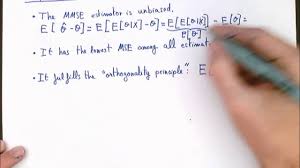 • The MMSE estimator is unbiased.
E[θ̂-θ]=E[E[θ|X]-θ]=E[E[θ|X]]-E[θ]=
E[θ]
• It has the lowest MSE among all estimat
• It fulfills the "orthogonality principle": E